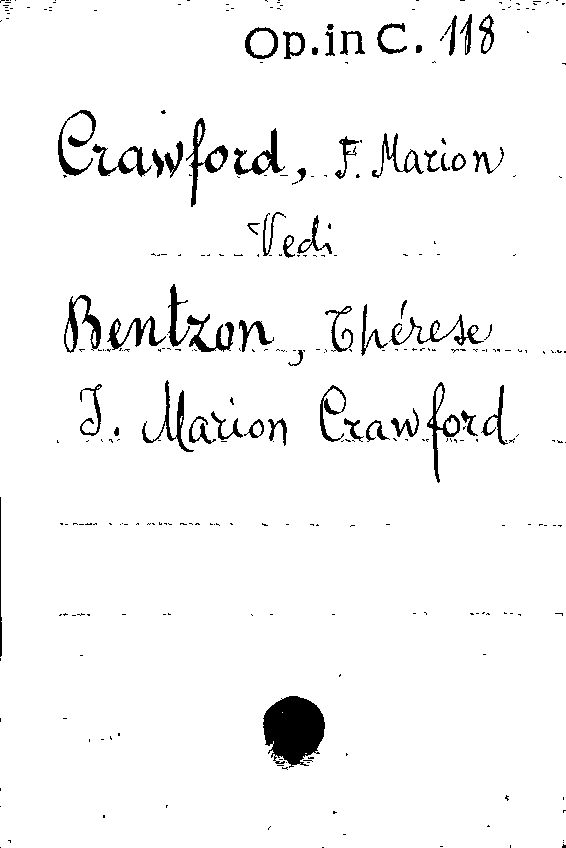 Op. in C. 118
Crawford, F. Marion
Vedi
Bentzon, Thérese
J. Marion Crawford